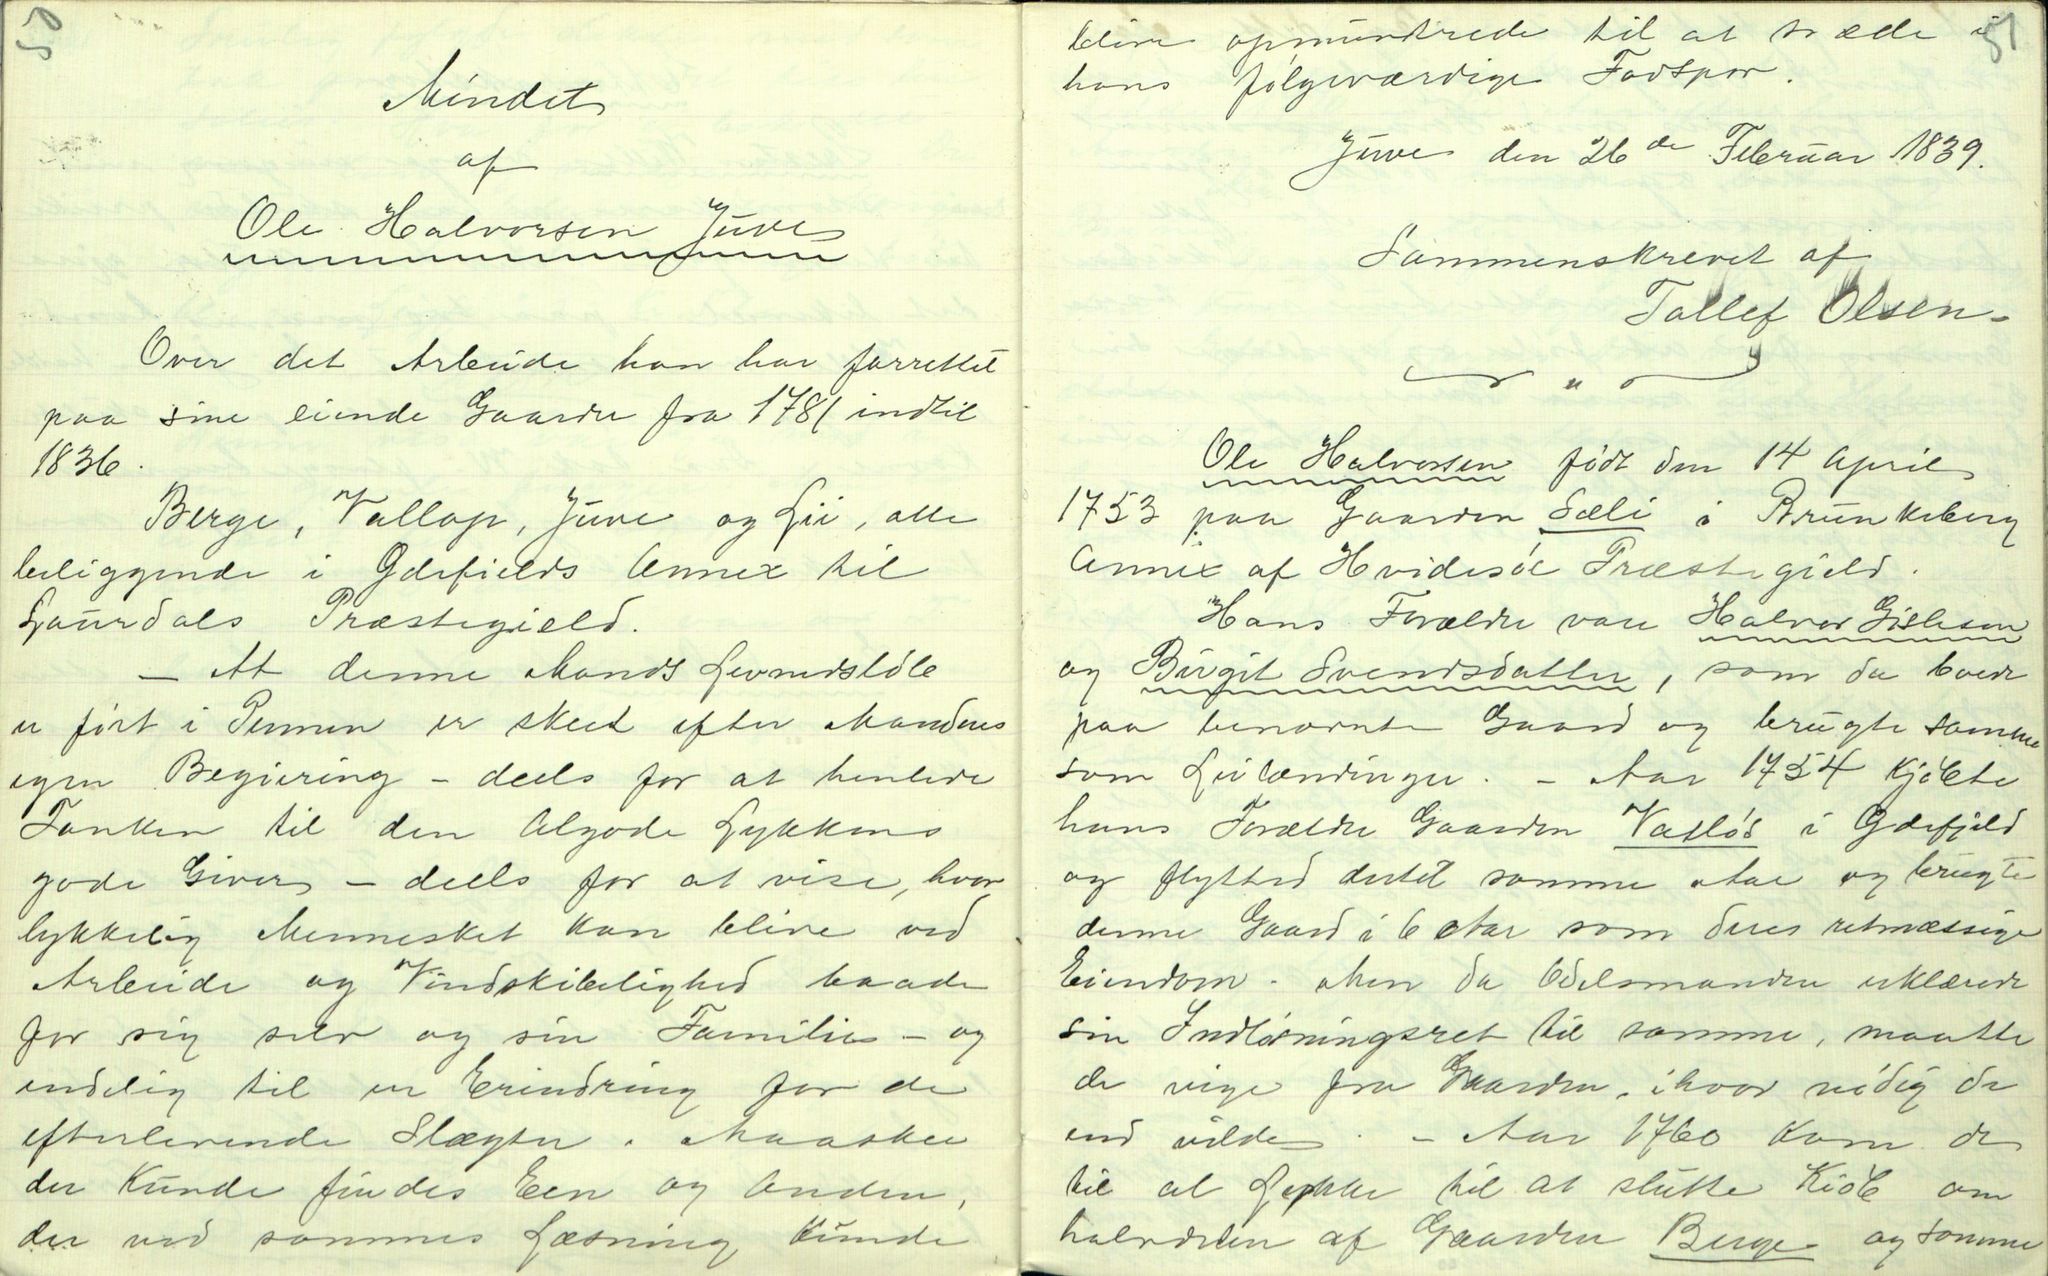 50
Mindet
af
Ole Halvorsen Juve
Over det Arbeide han har forrettet
paa sine eiende Gaarde fra 1781 indtil
1836.
Berge, Vallop, Juve og Lii, alle
beliggende i Odefields Annex til
Laurdals Præstegield.
– At denne Mands Levnedsløb
er ført i Pennen er skeet efter Mandens
egen Begiering – deels for at henlede
Tanken til den Algode Lykkens
gode Giver – deels for at vise, hvor
lykkelig Mennesket kan blive ved
Arbeide og Vindskibelighed baade
for sig selv og sin Familie – og
endelig til en Erindring for de
efterlevende Slægter. Maaskee
der kunde findes Een og Anden,
der ved sammes Læsning kunde
51
blive opmuntrede til at træde i
hans følgeværdige Fodspor.
Juve den 26de Februar 1839.
Sammenskrevet af
Tallef Olsen.
Ole Halvorsen født den 14 April
1753 paa Gaarden Sæli i Brunkeberg
Annex af Hvidesøe Præstegield.
Hans Forældre vare Halvor Gisleson
og Birgit Svendsdatter, som da boede
paa benævnte Gaard og brugte samme
som Leilændinger. – Aar 1754 kjøbte
hans Forældre Gaarden Vasløs i Odefjeld
og flytted dertil samme Aar og brugte
denne Gaard i 6 Aar som deres retmæssige
Eiendom. Men da Odelsmanden erklærede
sin Indløsningsret til samme, maatte
de vige fra Gaarden, ihvor nødig de
end vilde. – Aar 1760 kom de
til al Lykke til at slutte Kiøb om
halvdelen af Gaarden Berge og samme